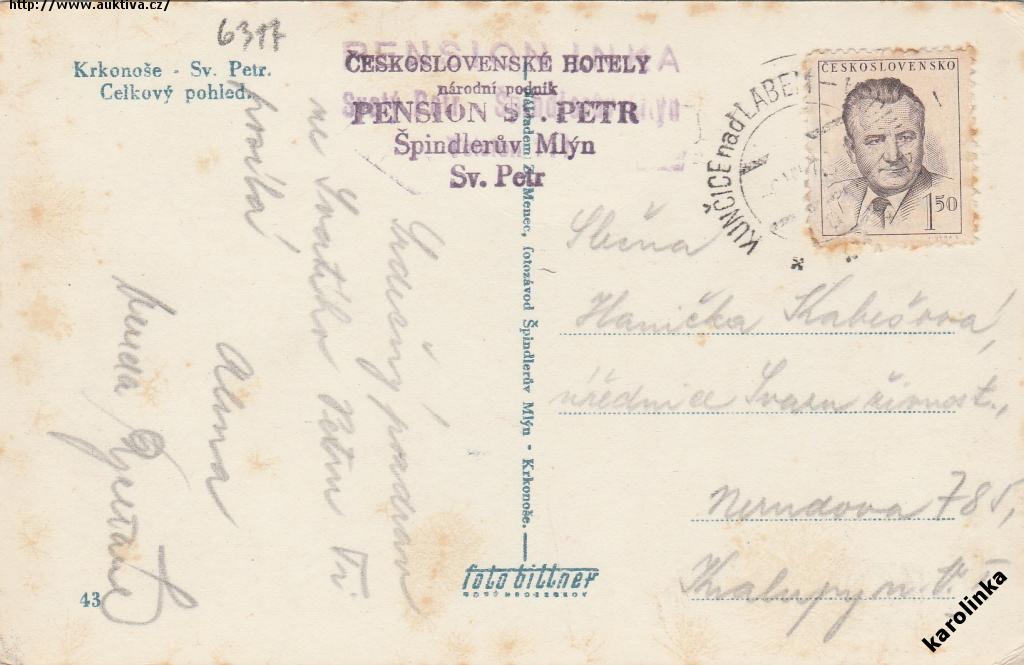 http://www.auktiva.cz/
6317
Krkonoše - Sv. Petr.
Celkový pohled.
PENSION INKA
ČESKOSLOVENSKÉ HOTELY
národní podnik
PENSION SV. PETR
Špindlerův Mlýn
Sv. Petr
KUNČICE nad LABEM
ČESKOSLOVENSKO
1 50
Srdečný pozdrav
ze Svatého Petra Ti
posílá
Alena
Slečna
Hanička Kabešová,
úřednice Svazu živnost.,
Nerudova 785,
Kralupy n. V.
nákladem Menec, fotozávod Špindlerův Mlýn - Krkonoše.
foto bittner
43
karolinka